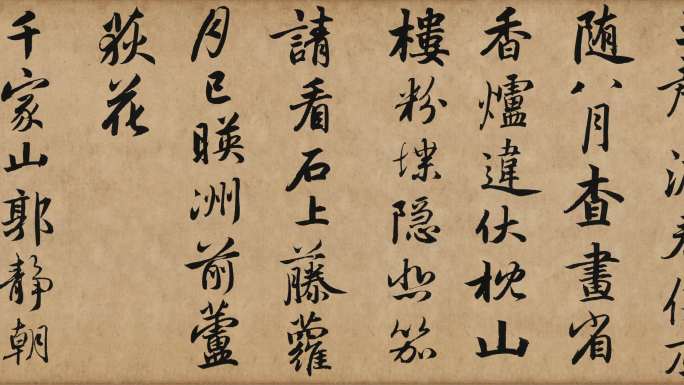 随八月查畫省
香爐違伏枕山
樓粉堞隐悲笳
請看石上藤蘿
月已暎洲前蘆
荻花
千家山郭静朝